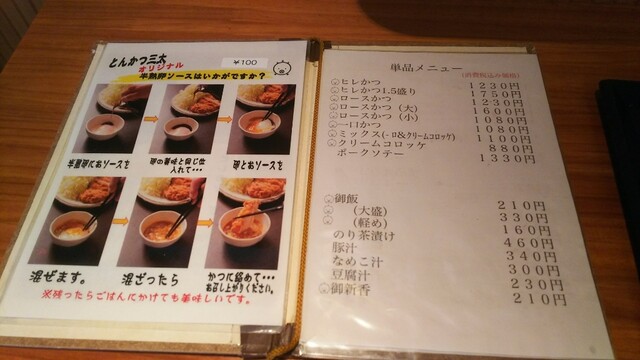 とんかつ三太
オリジナル
半熟卵ソースはいかがですか?
¥100
半熟卵におソースを
卵の黄味と同じ位
入れて・・・
卵とおソースを
混ぜます。
混ざったら
かつに絡めて・・・
お召し上がりください。
※残ったらごはんにかけても美味しいです。
単品メニュー
(消費税込み価格)
ヒレかつ 1230円
ヒレかつ1.5盛り 1750円
ロースかつ 1230円
ロースかつ (大) 1600円
ロースかつ (小) 1080円
一口かつ 1080円
ミックス(一口&クリームコロッケ) 1100円
クリームコロッケ 880円
ポークソテー 1330円
御飯 210円
(大盛) 330円
(軽め) 160円
のり茶漬け 460円
豚汁 340円
なめこ汁 300円
豆腐汁 230円
御新香 210円